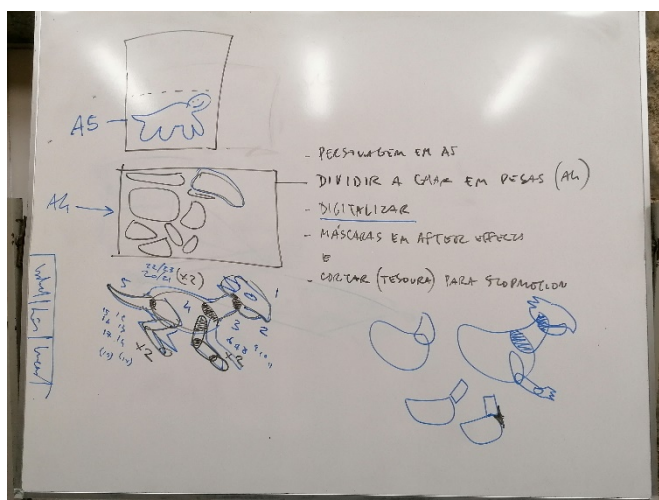 A5
A4
- PERSONAGEM EM A5
- DIVIDIR A CHAR EM PESAS (A4)
- DIGITALIZAR
- MÁSCARAS EM AFTER EFFECTS
E
- CORTAR (TESOURA) PARA STOPMOTION
22/23
20/21 (x2)
5
4
3
2
1
x2
x2